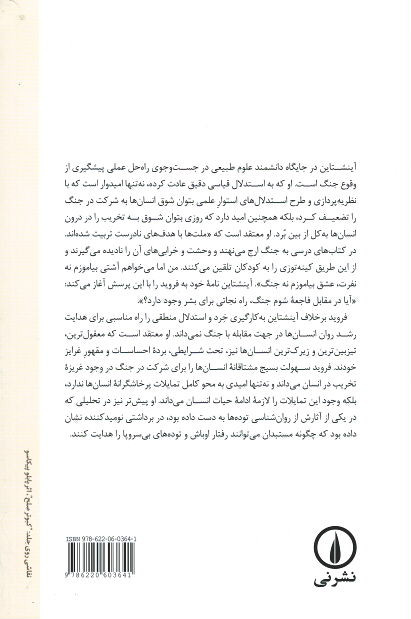 آینشتاین در جایگاه دانشمند علوم طبیعی در جست‌وجوی راه‌حل عملی پیشگیری از
وقوع جنگ است. او که به استدلال قیاسی دقیق عادت کرده، نه‌تنها امیدوار است که با
نظریه‌پردازی و طرح استدلال‌های استوار علمی بتوان شوق انسان‌ها به شرکت در جنگ
را تضعیف کرد، بلکه همچنین امید دارد که روزی بتوان شوق به تخریب را در درون
انسان‌ها به‌کل از بین بُرد. او معتقد است که «ملت‌ها با هدف‌های نادرست تربیت شده‌اند.
در کتاب‌های درسی به جنگ ارج می‌نهند و وحشت و خرابی‌های آن را نادیده می‌گیرند و
از این طریق کینه‌توزی را به کودکان تلقین می‌کنند. من اما می‌خواهم آشتی بیاموزم نه
نفرت، عشق بیاموزم نه جنگ». آینشتاین نامهٔ خود به فروید را با این پرسش آغاز می‌کند:
«آیا در مقابل فاجعهٔ شوم جنگ، راه نجاتی برای بشر وجود دارد؟».
فروید برخلاف آینشتاین به‌کارگیری خِرد و استدلال منطقی را راه مناسبی برای هدایت
رشد روان انسان‌ها در جهت مقابله با جنگ نمی‌داند. او معتقد است که معقول‌ترین،
تیزبین‌ترین و زیرک‌ترین انسان‌ها نیز، تحت شرایطی، بردهٔ احساسات و مقهور غرایز
خودند. فروید سهولت بسیج مشتاقانهٔ انسان‌ها را برای شرکت در جنگ در وجود غریزهٔ
تخریب در انسان می‌داند و نه‌تنها امیدی به محو کامل تمایلات پرخاشگرانهٔ انسان‌ها ندارد،
بلکه وجود این تمایلات را لازمهٔ ادامهٔ حیات انسان می‌داند. او پیش‌تر نیز در تحلیلی که
در یکی از آثارش از روان‌شناسی توده‌ها به دست داده بود، در برداشتی نومیدکننده نشان
داده بود که چگونه مستبدان می‌توانند رفتار اوباش و توده‌های بی‌سروپا را هدایت کنند.
نقاشی روی جلد: "کبوتر صلح"، اثر پابلو پیکاسو
ISBN 978-622-06-0364-1
9 786220 603641
نشرنی